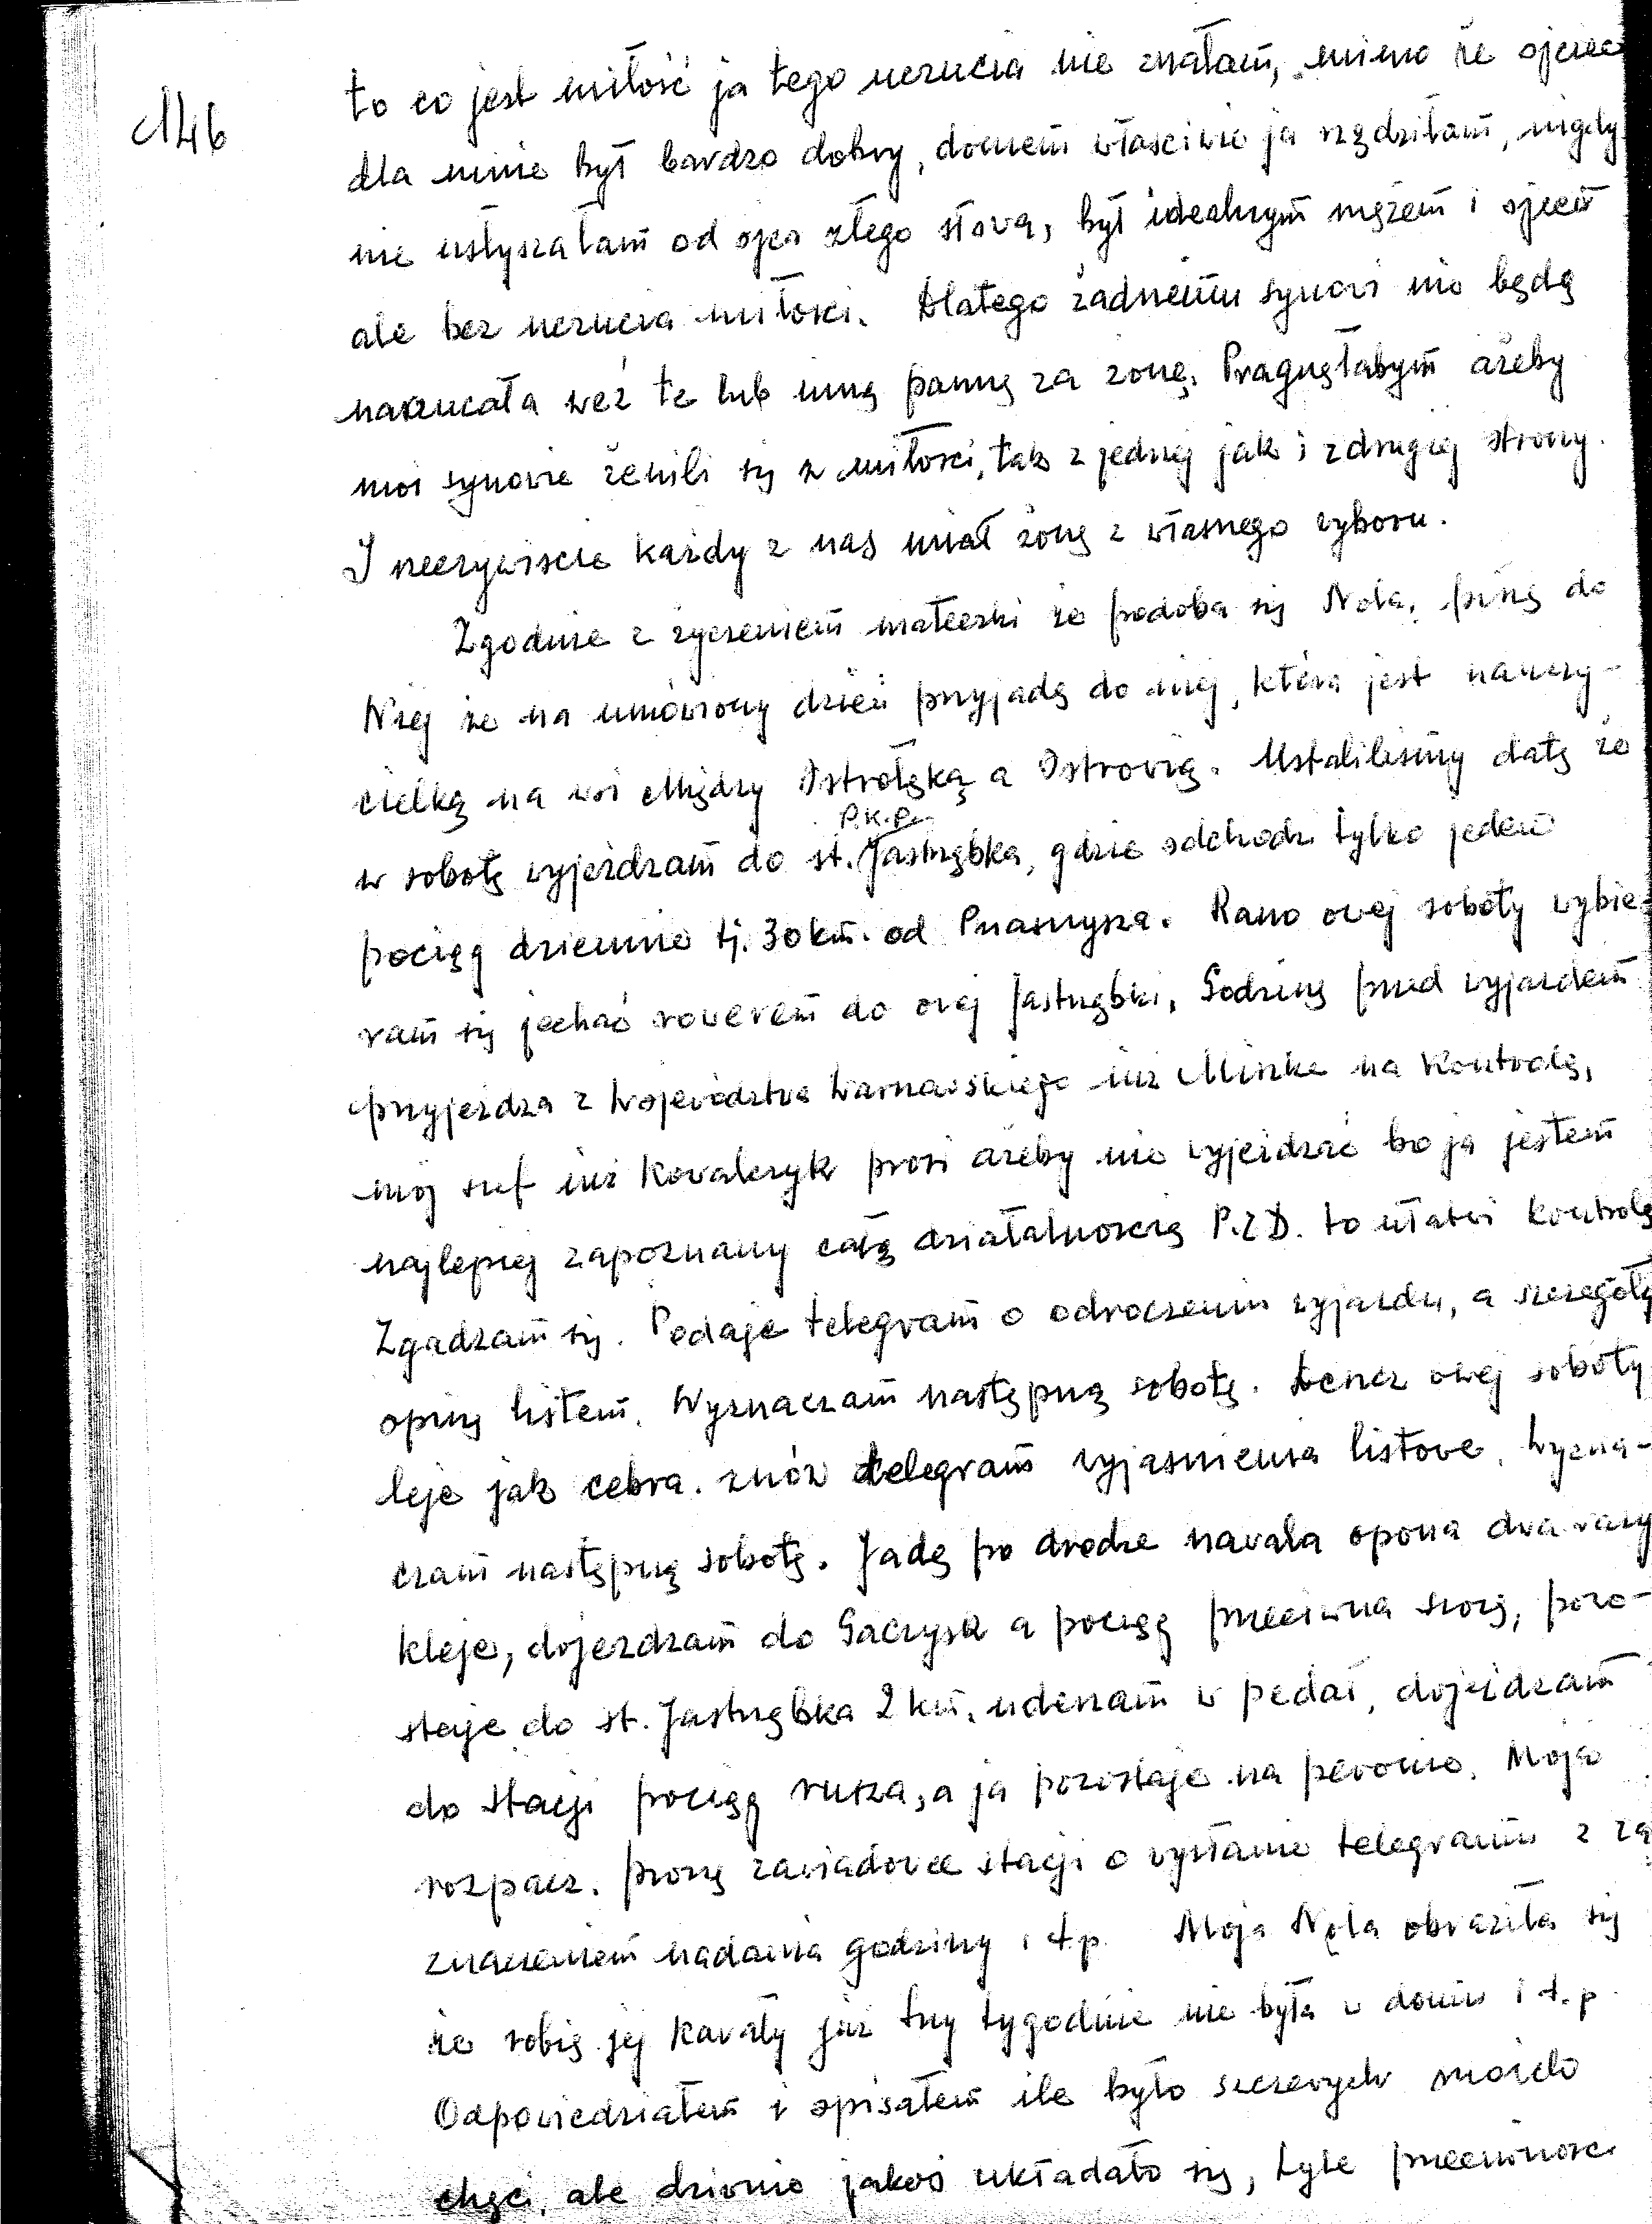 146
to co jest miłość ja tego uczucia nie znałam, mimo że ojciec
dla mnie był bardzo dobry, domem właściwie ja rządziłam, nigdy
nie usłyszałam od ojca złego słowa, był idealnym mężem i ojcem
ale bez uczucia miłości. Dlatego żadnemu synowi nie będę
narzucała weź te lub inną pannę za żonę. Pragnęłabym ażeby
moi synowie żenili się z miłości, tak z jednej jak i z drugiej strony.
I rzeczywiście każdy z nas miał żonę z własnego wyboru.
Zgodnie z życzeniem mateczki że podoba się Nola, piszę do
Niej że na umówiony dzień przyjadę do niej, która jest nauczy-
cielką na wsi między Ostrołęką a Ostrowią. Ustaliliśmy datę że
w sobotę wyjeżdżam do st. P.K.P. Jastrząbka, gdzie odchodzi tylko jeden
pociąg dziennie tj. 30 km. od Przasnysza. Rano owej soboty wybie-
ram się jechać rowerem do owej Jastrząbki, Godzinę przed wyjazdem
przyjeżdża z Województwa Warszawskiego inż Miszke na kontrolę,
mój szef inż Kowalczyk prosi ażeby nie wyjeżdżać bo ja jestem
najlepiej zapoznany całą działalnością P.Z.D. to ułatwi kontrolę
Zgadzam się. Podaje telegram o odroczeniu wyjazdu, a szczegóły
opiszę listem. Wyznaczam następną sobotę. Lecz owej soboty
leje jak cebra. znów telegram wyjaśnienia listowe. Wyzna-
czam następną sobotę. Jadę po drodze nawala opona dwa razy
kleje, dojeżdżam do Gaczysk a pociąg przecina szosę, pozo-
staje do st. Jastrząbka 2 km. uderzam w pedał, dojeżdżam
do stacji pociąg rusza, a ja pozostaje na peronie. Moja
rozpacz. proszę zawiadowce stacji o wysłanie telegramu z za
znaczeniem nadania godziny i t.p. Moja Nola obraziła się
że robię jej kawały już trzy tygodnie nie była w domu i t.p.
Odpowiedziałem i opisałem ile było szczerych moich
chęci, ale dziwnie jakoś układało się, tyle przeciwności